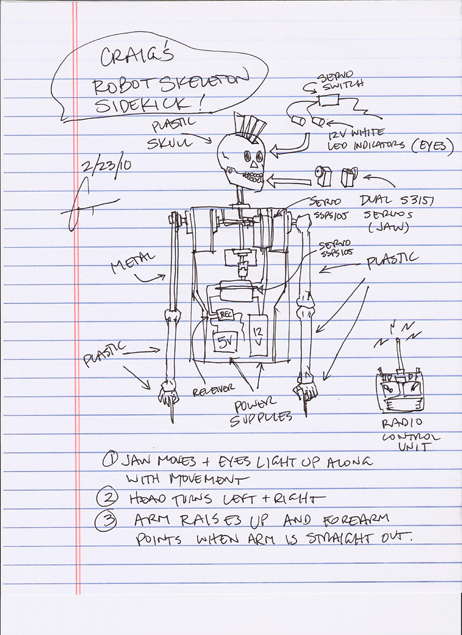 CRAIG'S
ROBOT SKELETON
SIDEKICK!
2/23/10
PLASTIC
SKULL
SERVO
SWITCH
12V WHITE
LED INDICATORS (EYES)
DUAL S3157
SERVOS
(JAW)
SERVO
SSPS105
SERVO
SSPS105
METAL
PLASTIC
PLASTIC
REC
5V
12
V
RECEIVER
POWER
SUPPLIES
RADIO
CONTROL
UNIT
1 JAW MOVES + EYES LIGHT UP ALONG
WITH MOVEMENT
2 HEAD TURNS LEFT + RIGHT
3 ARM RAISES UP AND FOREARM
POINTS WHEN ARM IS STRAIGHT OUT.